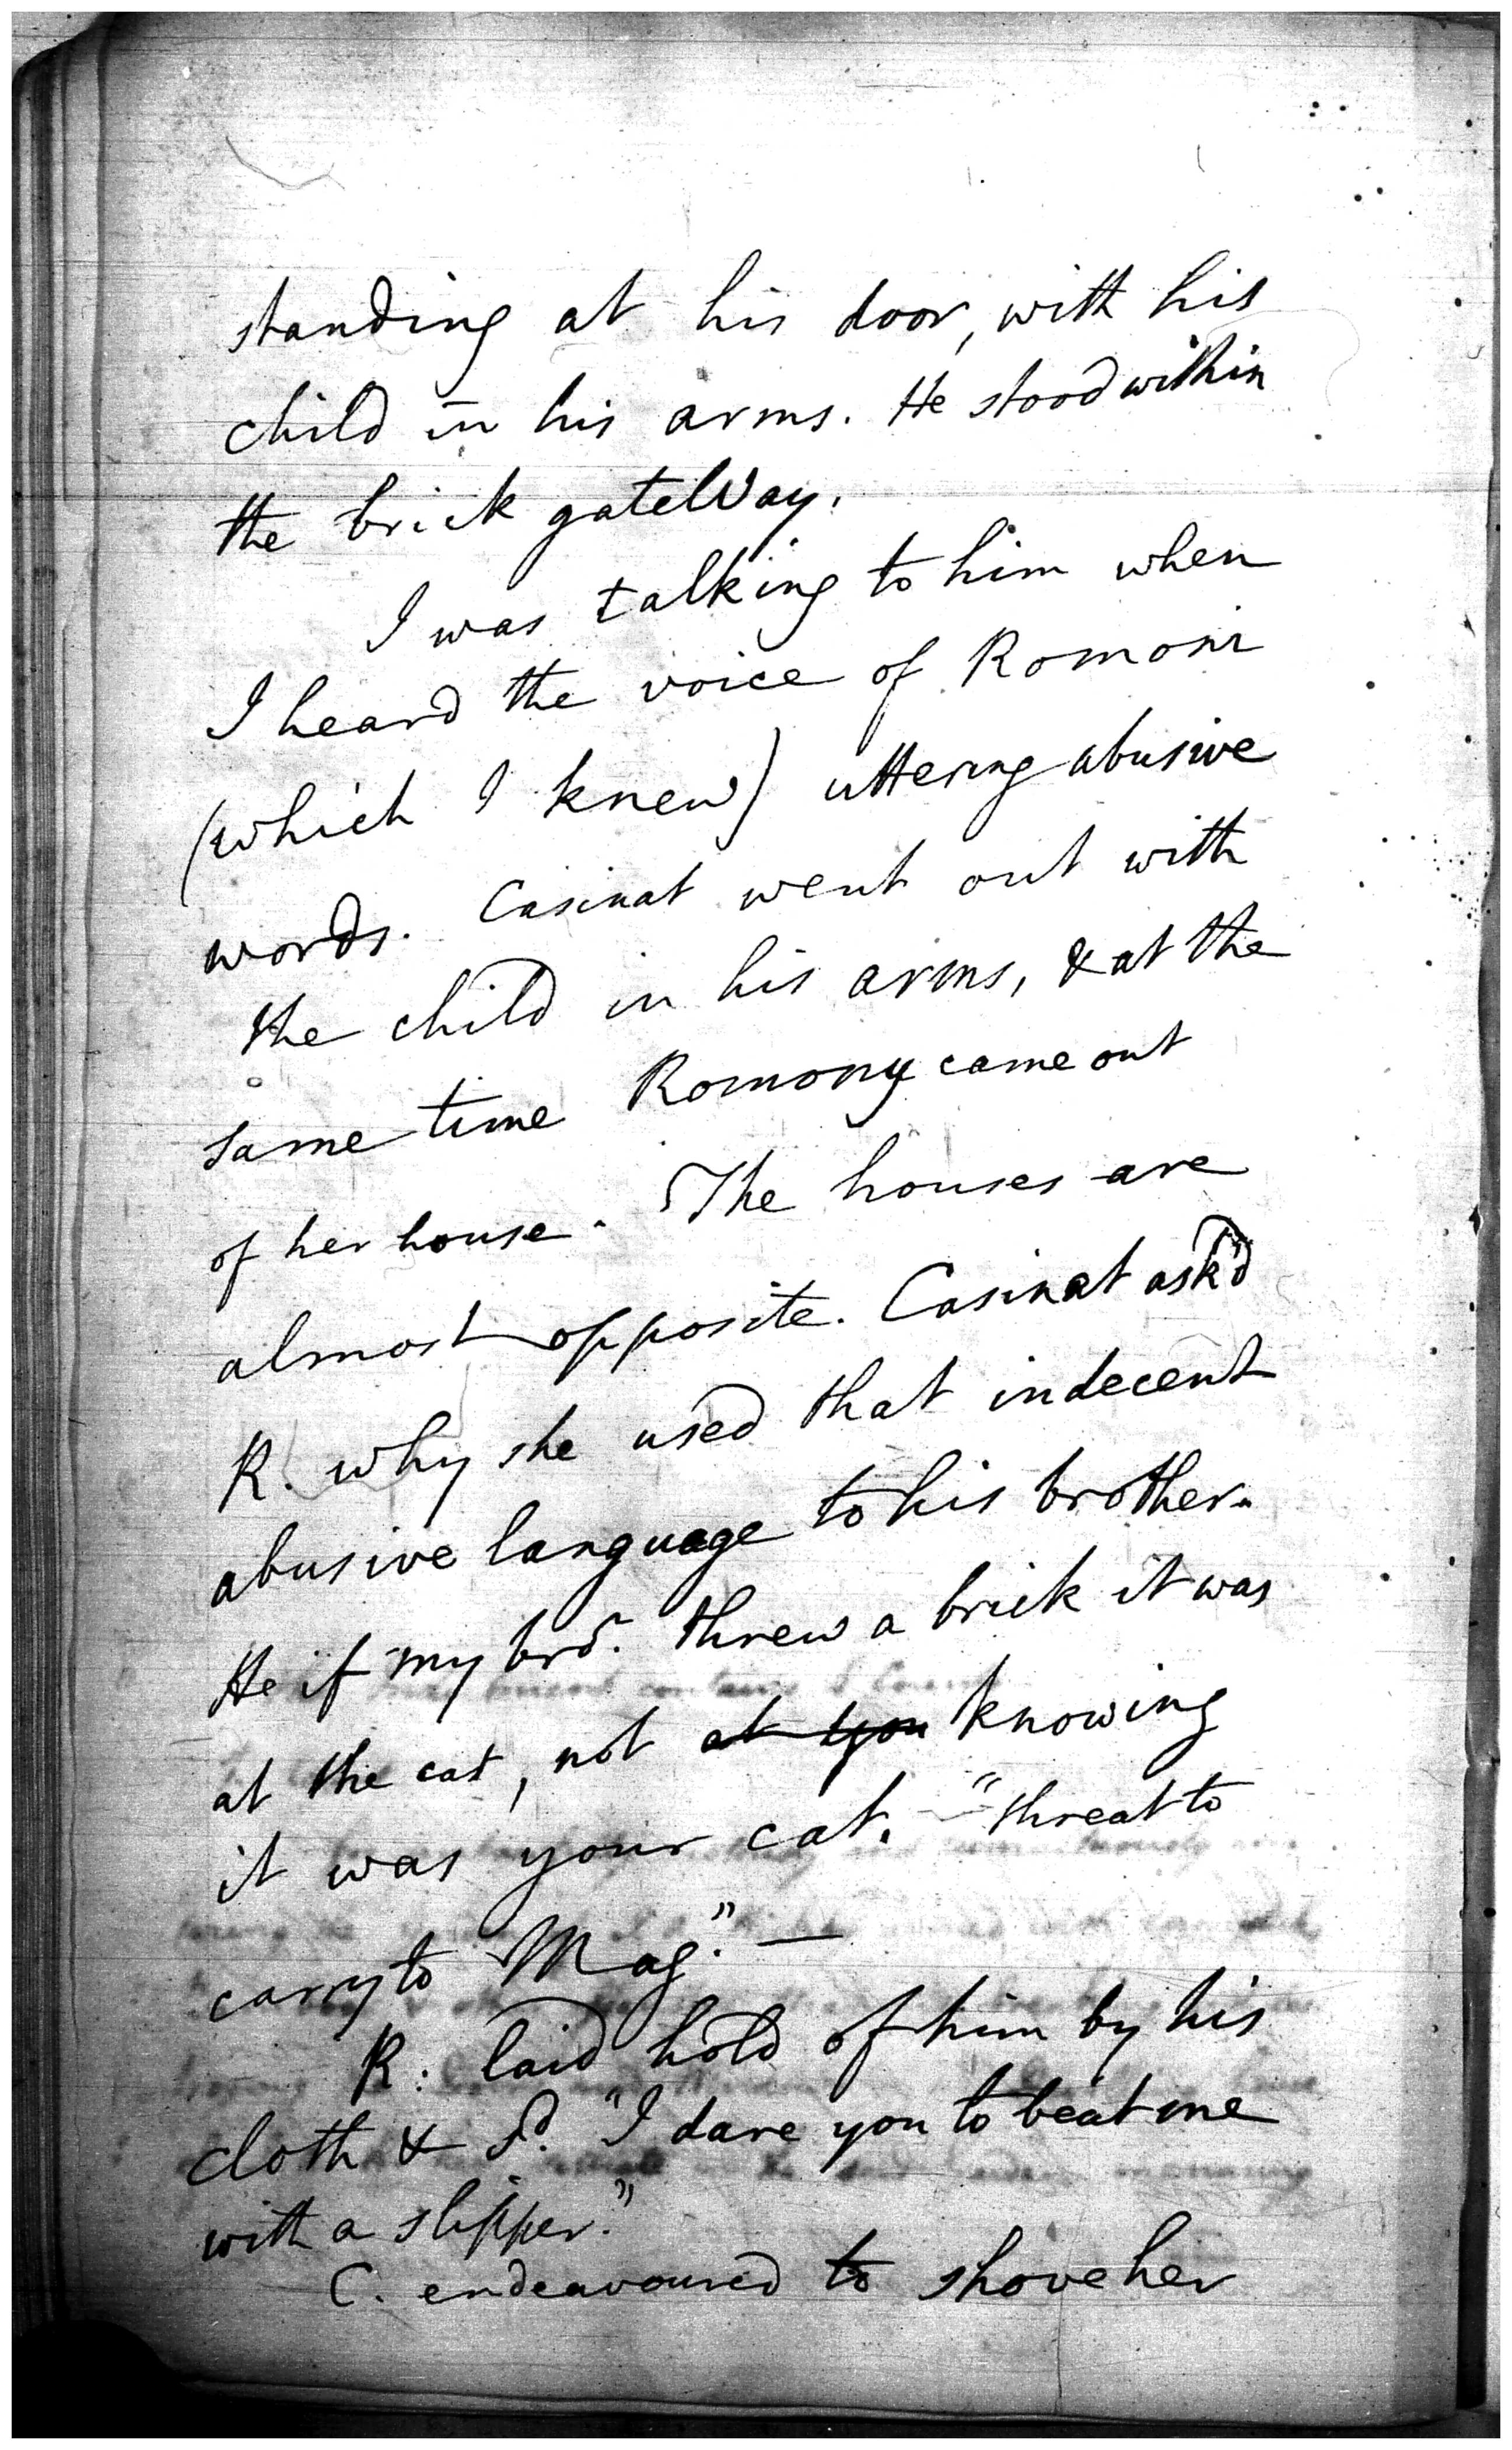 standing at his door, with his
child in his arms. He stood within
the brick gateWay.
I was talking to him when
I heard the voice of Romoni
(which I knew) uttering abusive
words. Casinat went out with
the child in his arms, & at the
same time Romony came out
of her house. The houses are
almost opposite. Casinat ask'd
R. why she used that indecent
abusive language to his brother.
He if my bror. threw a brick it was
at the cat, not at you knowing
it was your cat. "threat to
carry to Mag." —
R: laid hold of him by his
cloth & sd. "I dare you to beat me
with a slipper."
C. endeavoured to shove her